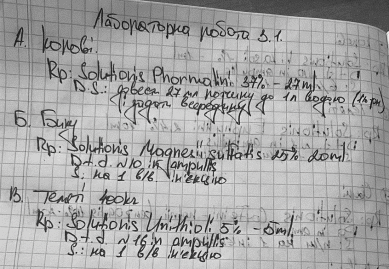 Лабораторна робота 3.1.
А. Корові.
Rp: Solutionis Phormalini 37% - 27ml
D.S.: довести 27 мл розчину до 1л водою (1% рн)
задати всередину
Б. Бику
Rp: Solutionis Magnesii sulfatis 25% - 20ml
D.t.d. N10 in ampullis
S.: на 1 в/в ін'єкцію
В. Телиті
Rp: Solutionis Unithioli 5% - 5ml
D.t.d. N16 in ampullis
S.: на 1 в/в ін'єкцію